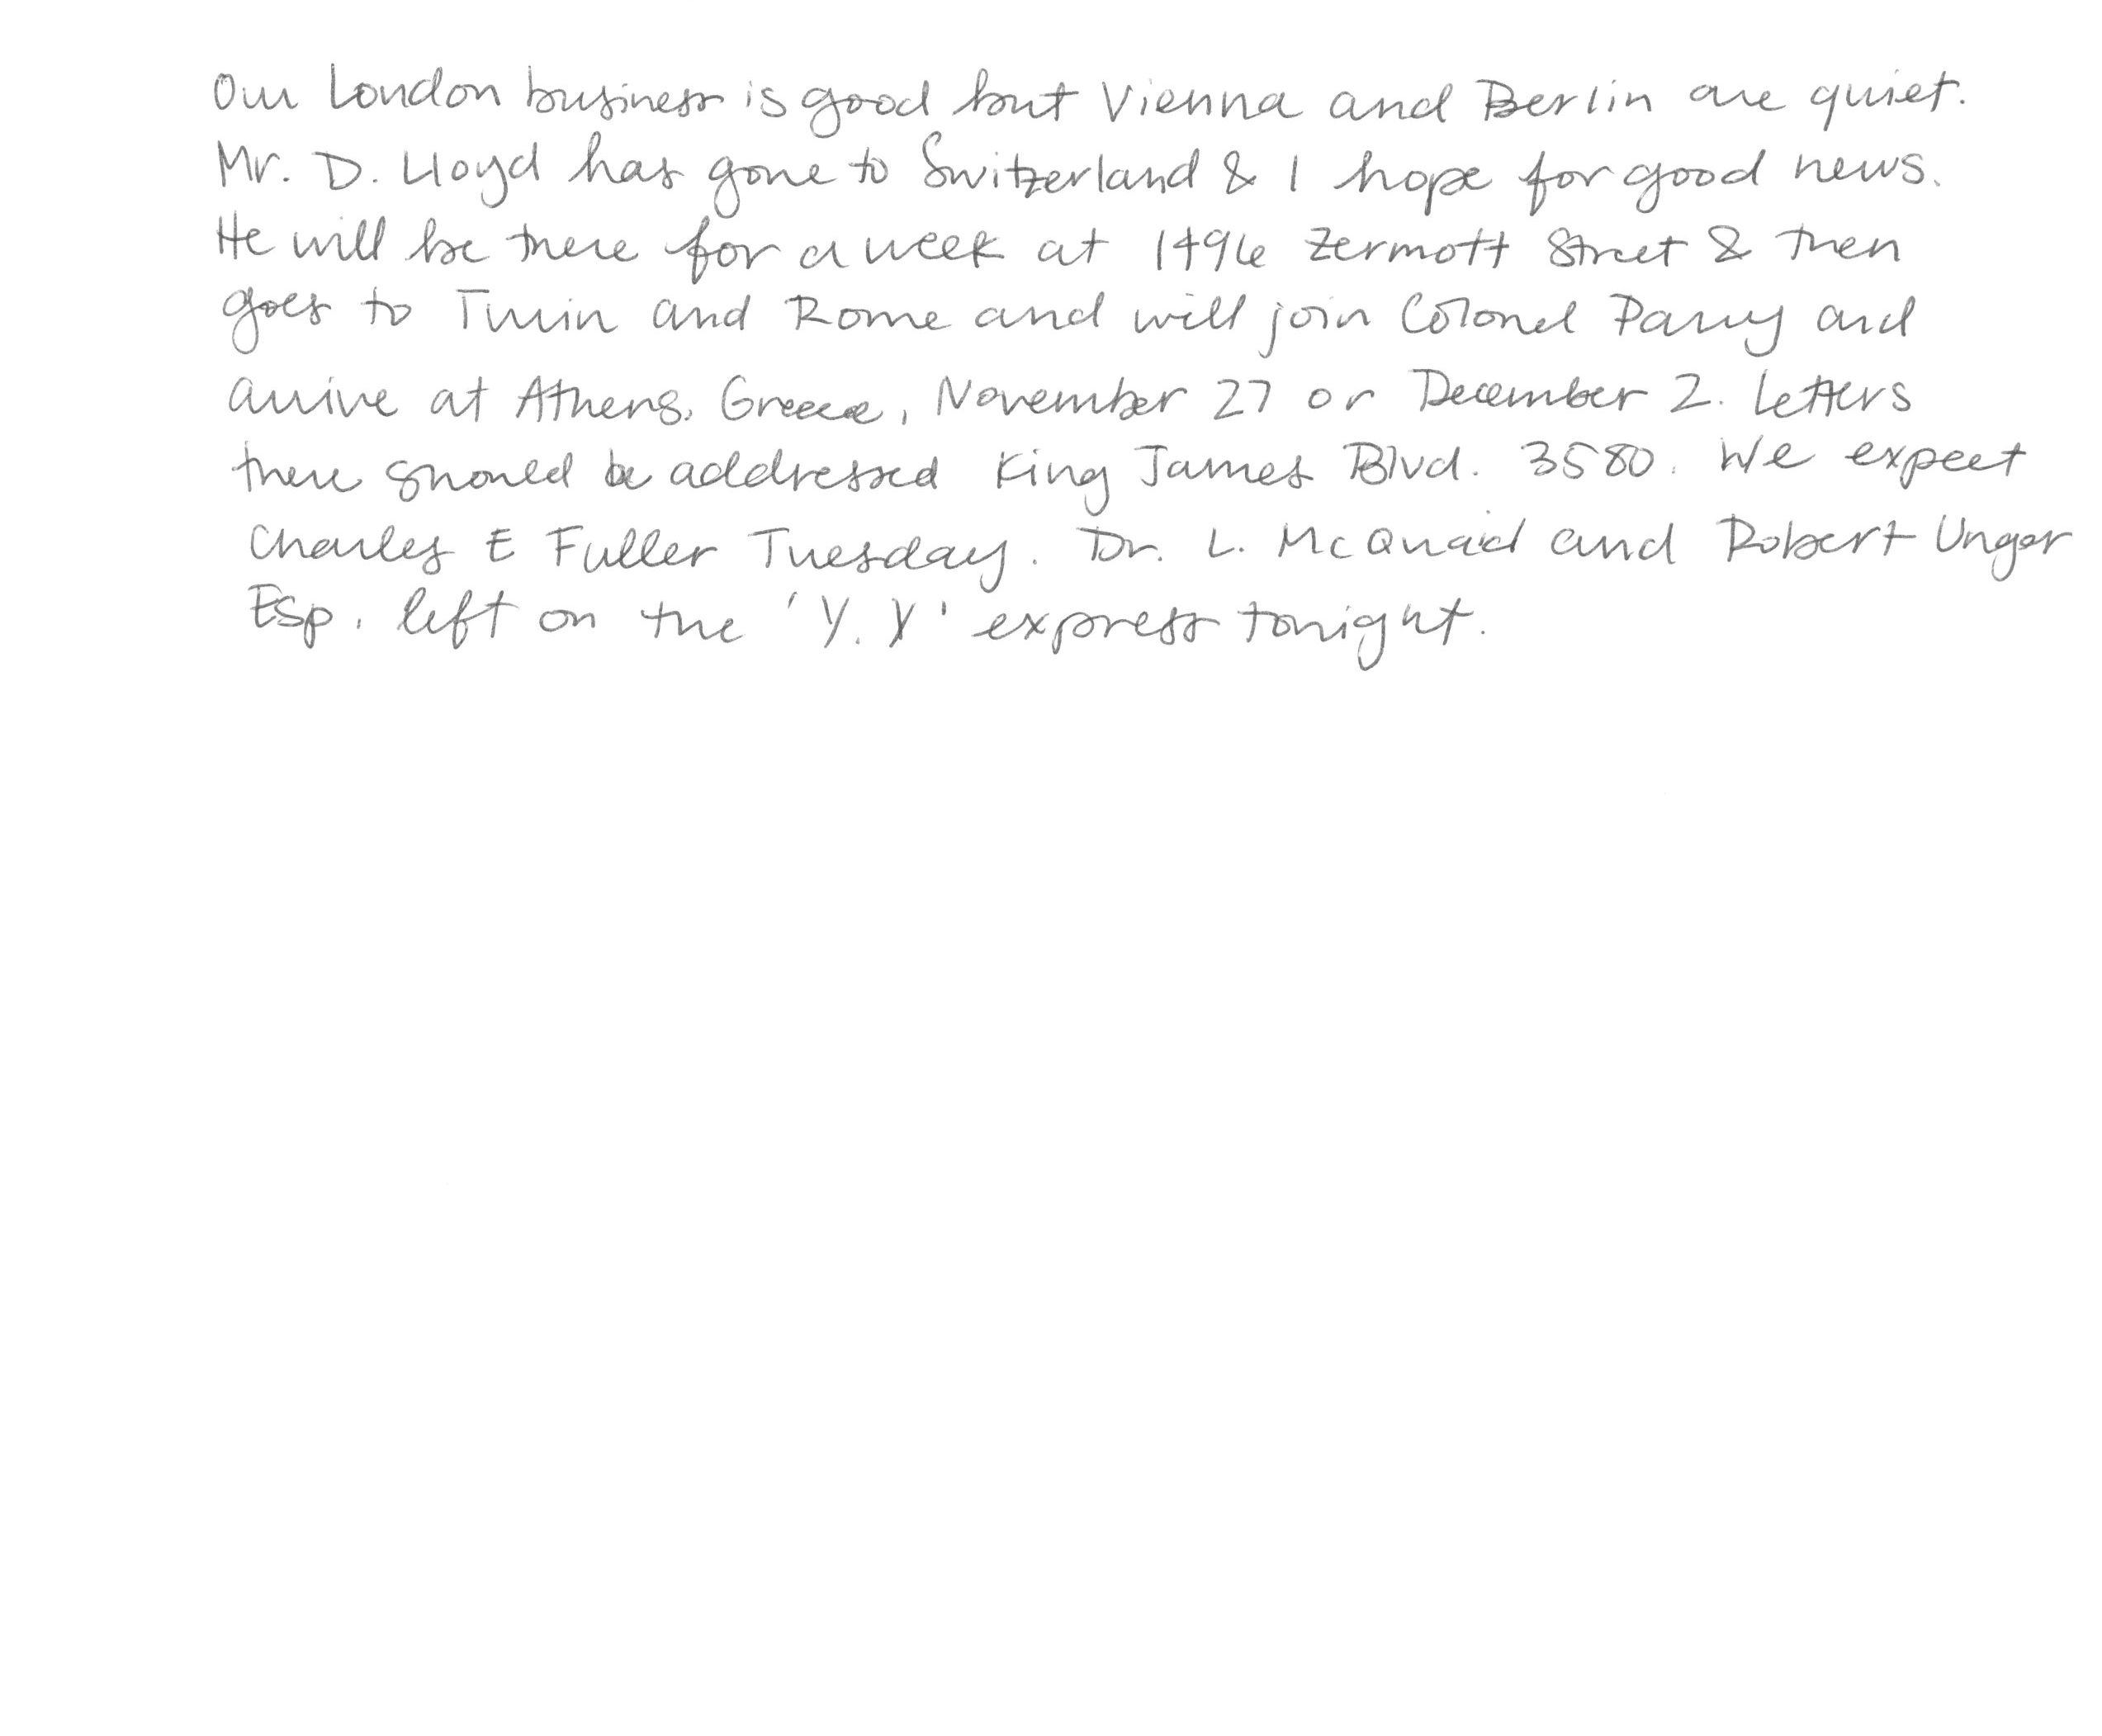 Our London business is good but Vienna and Berlin are quiet.
Mr. D. Lloyd has gone to Switzerland & I hope for good news.
He will be there for a week at 1496 Zermott Street & then
goes to Turin and Rome and will join Colonel Parry and
arrive at Athens, Greece, November 27 or December 2. Letters
there should be addressed King James Blvd. 3580. We expect
Charles E Fuller Tuesday. Dr. L. McQuaid and Robert Unger
Esp. left on the 'Y.X' express tonight.